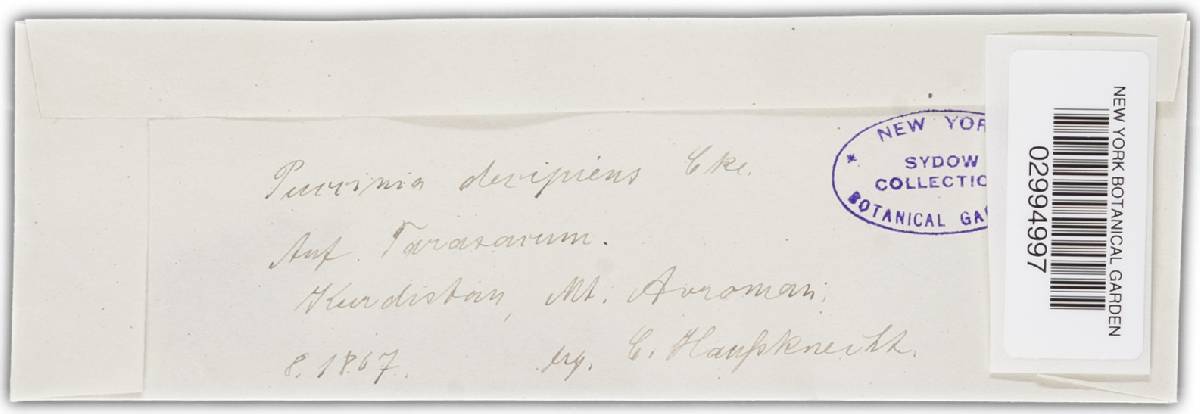 Puccinia decipiens Cke.
Auf Taraxacum.
Kurdistan, Mt. Avroman.
8. 1867. leg. C. Haußknecht.
NEW YOR
SYDOW
COLLECTIO
BOTANICAL GA
NEW YORK BOTANICAL GARDEN
02994997